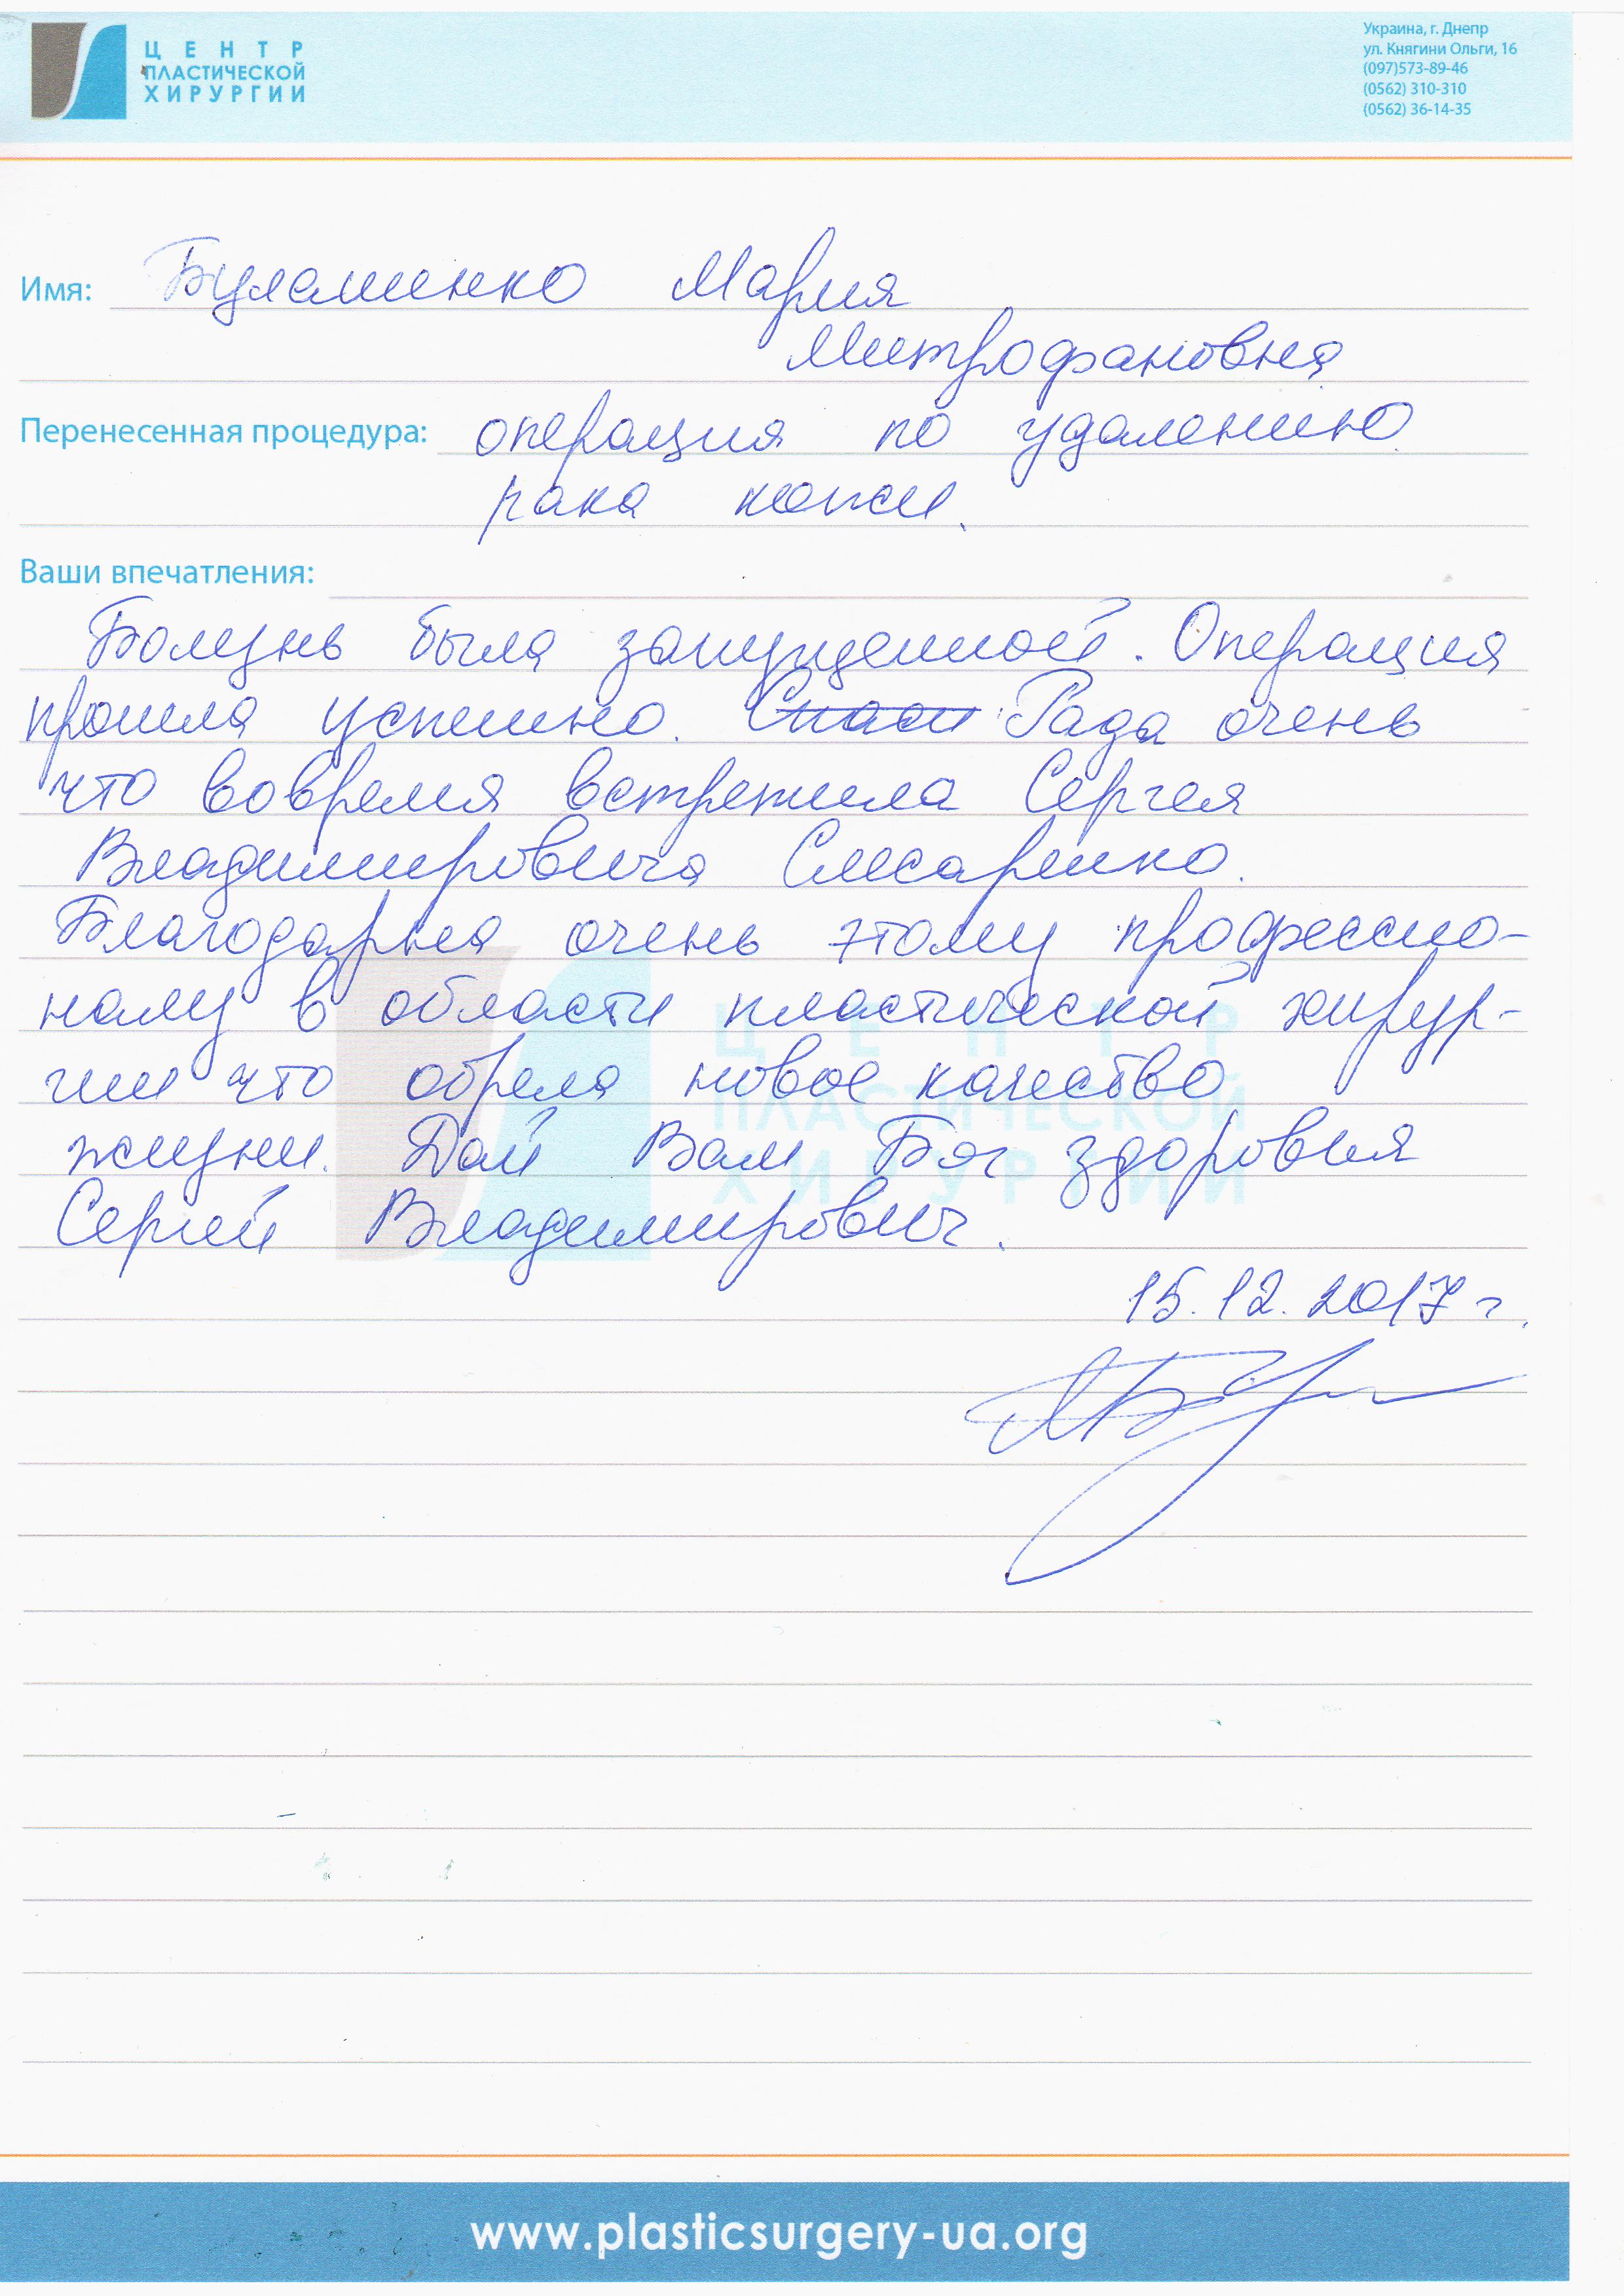 ЦЕНТР
ПЛАСТИЧЕСКОЙ
ХИРУРГИИ
Украина, г. Днепр
ул. Княгини Ольги, 16
(097)573-89-46
(0562) 310-310
(0562) 36-14-35
Имя: Мария
Митрофановна
Перенесенная процедура: операция по удалению
рака кожи.
Ваши впечатления:
Болезнь была запущенной. Операция
прошла успешно. Спаси Рада очень
что вовремя встретила Сергея
Владимировича Слесаренко.
Благодарна очень этому профессио-
налу в области пластической хирур-
гии что обрела новое качество
жизни. Дай Вам Бог здоровия
Сергей Владимирович.
15.12.2017 г.
ЦЕНТР
ПЛАСТИЧЕСКОЙ
ХИРУРГИИ
www.plasticsurgery-ua.org